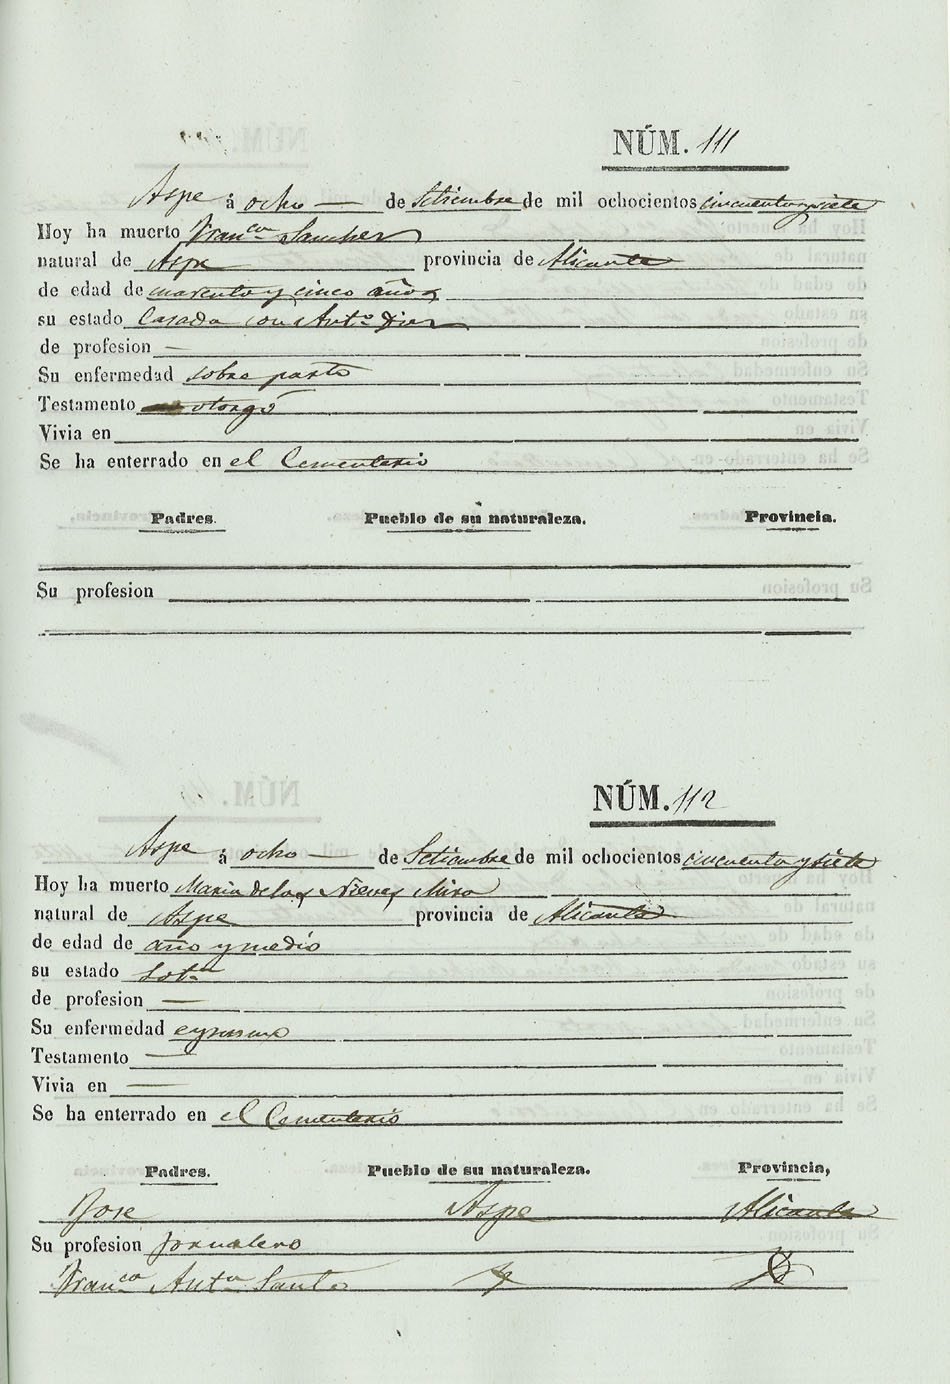 NÚM. 111
Aspe á ocho — de Setiembre de mil ochocientos cincuenta y siete
Hoy ha muerto Fran.ca Sanchez
natural de Aspe provincia de Alicante
de edad de cuarenta y cinco años
su estado Casada con Ant.o Diez
de profesion —
Su enfermedad sobre parto
Testamento otorgó
Vivia en
Se ha enterrado en el Cementerio
Padres. Pueblo de su naturaleza. Provincia.
Su profesion
NÚM. 112
Aspe á ocho — de Setiembre de mil ochocientos cincuenta y siete
Hoy ha muerto Maria de las Nieves Mira
natural de Aspe provincia de Alicante
de edad de año y medio
su estado Solt.a
de profesion —
Su enfermedad
Testamento —
Vivia en —
Se ha enterrado en el Cementerio
Padres. Pueblo de su naturaleza. Provincia,
Jose Aspe Alicante
Su profesion jornalero
Fran.ca Ant.a Santo